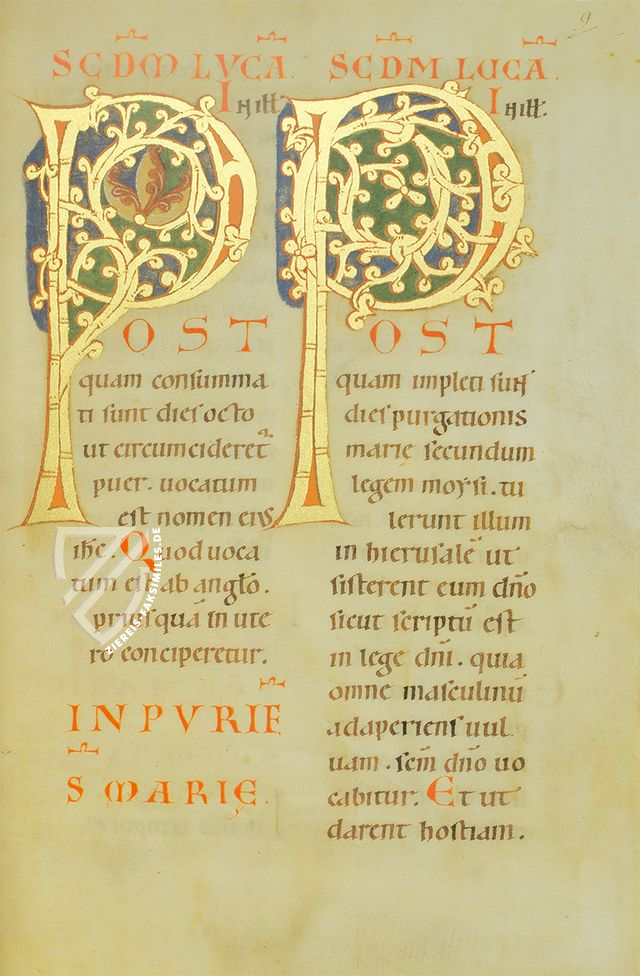 9
SC̄DM LVCĀ.
I N ILL̄.
POST
quam consumma
ti sunt dies octo
ut circumcideret᷑
puer. uocatum
est nomen eius
ih̅c. Quod uoca
tum est ab angl̅o.
priusquā in ute
ro conciperetur.
IN PVRIF̄
S̄ MARIĘ.
SC̄DM LUCĀ
I N ILL̄.
POST
quam impleti sunt
dies purgationis
marię secundum
legem moysi. tu
lerunt illum
in hierusalē ut
sisterent eum dn̅o
sicut scriptū est
in lege dn̅i. quia
omne masculinū
adaperiens uul
uam. sc̅m dn̅o uo
cabitur. Et ut
darent hostiam.
ZIEREIS-FAKSIMILES.DE